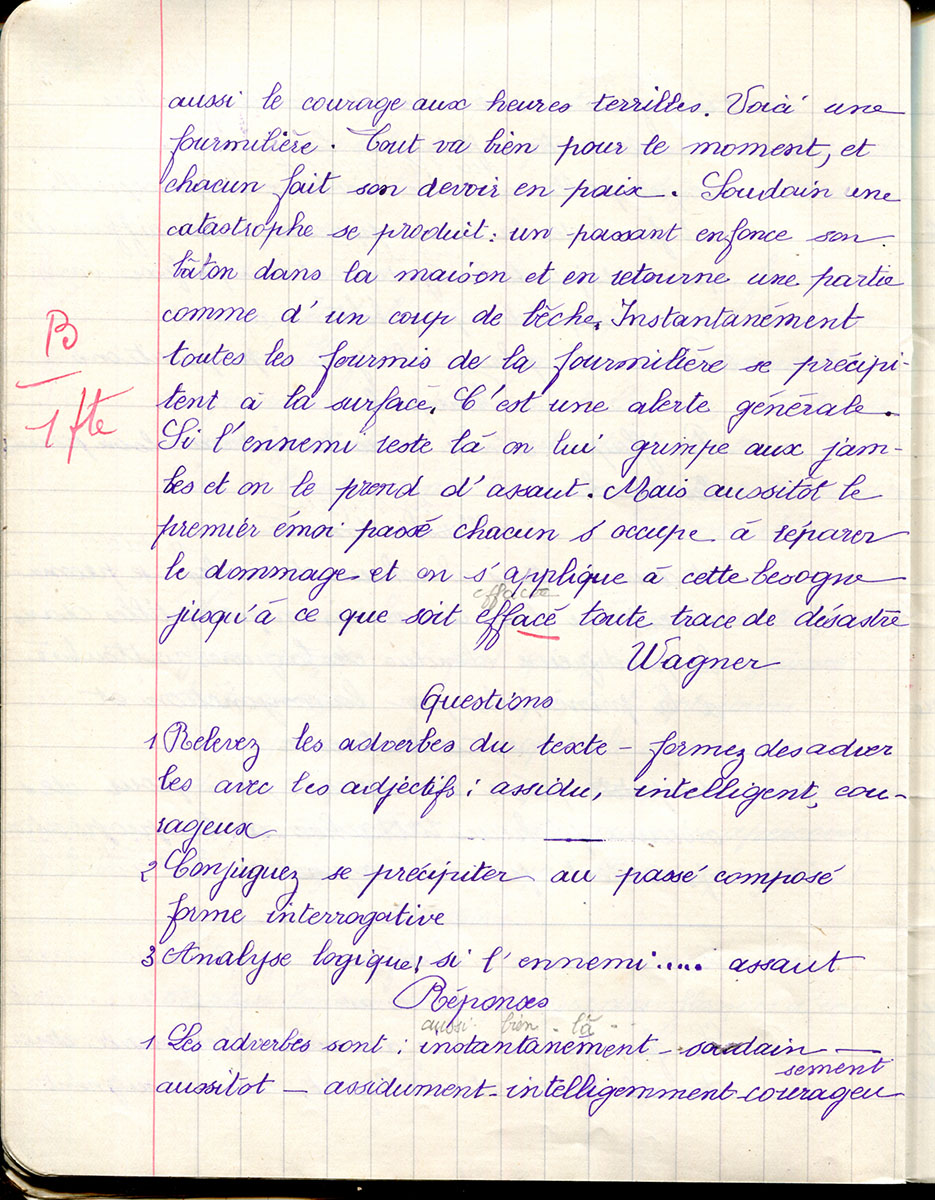 aussi le courage aux heures terribles. Voici une
fourmilière. Tout va bien pour le moment, et
chacun fait son devoir en paix. Soudain une
catastrophe se produit : un passant enfonce son
bâton dans la maison et en retourne une partie
comme d'un coup de bêche. Instantanément
B
toutes les fourmis de la fourmilière se précipi-
tent à la surface. C'est une alerte générale.
1 fte
Si l'ennemi reste là on lui grimpe aux jam-
bes et on le prend d'assaut. Mais aussitôt le
premier émoi passé chacun s'occupe à réparer
le dommage et on s'applique à cette besogne
effacée
jusqu'à ce que soit effacé toute trace de désastre
Wagner
Questions
1 Relevez les adverbes du texte - formez des adver
bes avec les adjectifs : assidu, intelligent, cou-
rageux
2 Conjuguez se précipiter au passé composé
forme interrogative
3 Analyse logique : si l'ennemi..... assaut
Réponses
aussi - bien - là -
1 Les adverbes sont : instantanément - soudain -
sement
aussitot - assidument - intelligemment - courageu